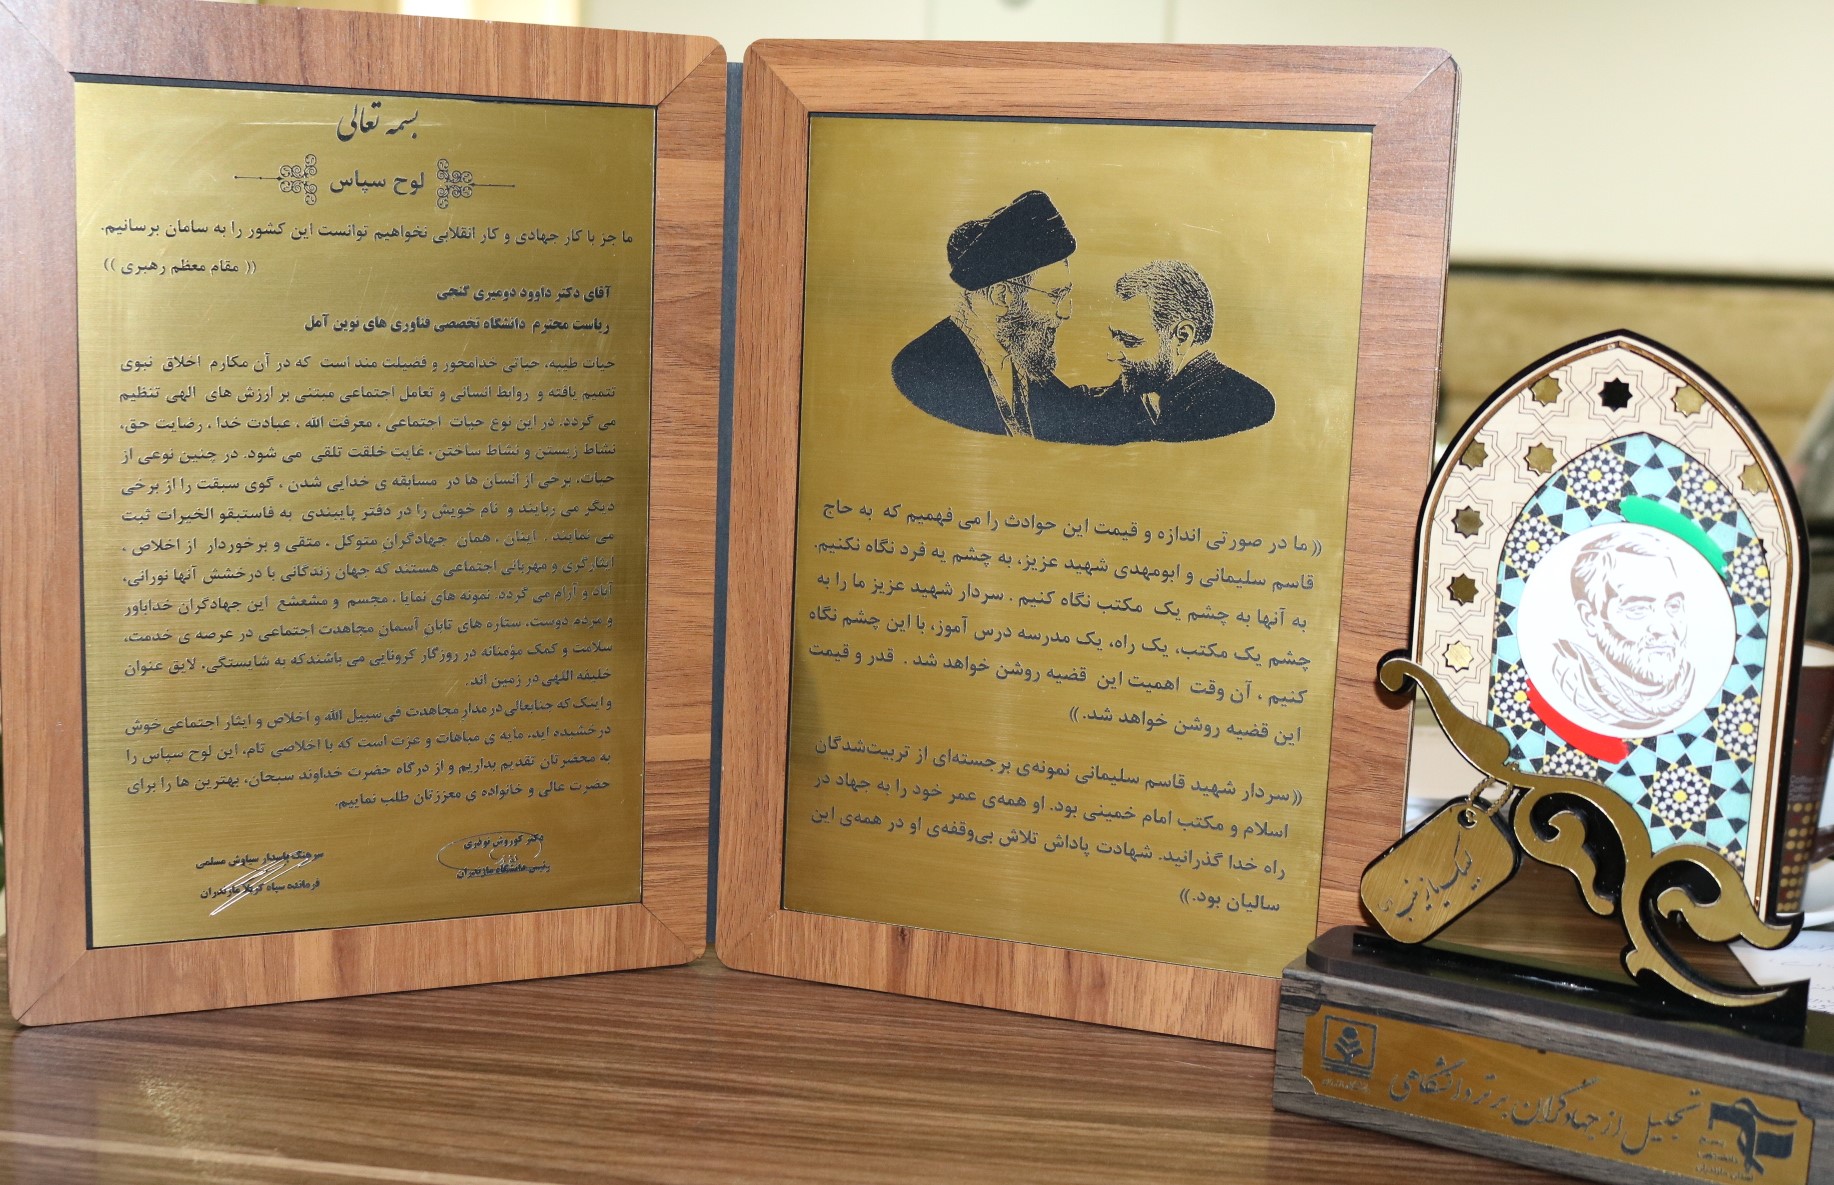 بسمه تعالی
لوح سپاس
ما جز با کار جهادی و کار انقلابی نخواهیم توانست این کشور را به سامان برسانیم.
(( مقام معظم رهبری ))
آقای دکتر داوود دومیری گنجی
ریاست محترم دانشگاه تخصصی فناوری های نوین آمل
حیات طیبه، حیاتی خدامحور و فضیلت مند است که در آن مکارم اخلاق نبوی
تتمیم یافته و روابط انسانی و تعامل اجتماعی مبتنی بر ارزش های الهی تنظیم
می گردد. در این نوع حیات اجتماعی ، معرفت الله ، عبادت خدا ، رضایت حق،
نشاط زیستن و نشاط ساختن، غایت خلقت تلقی می شود. در چنین نوعی از
حیات، برخی از انسان ها در مسابقه ی خدایی شدن ، گوی سبقت را از برخی
دیگر می ربایند و نام خویش را در دفتر پایبندی به فاستبقو الخیرات ثبت
می نمایند . اینان ، همان جهادگران متوکل ، متقی و برخوردار از اخلاص ،
ایثارگری و مهربانی اجتماعی هستند که جهان زندگانی با درخشش آنها نورانی،
آباد و آرام می گردد. نمونه های نمایا ، مجسم و مشعشع این جهادگران خداباور
و مردم دوست، ستاره های تابان آسمان مجاهدت اجتماعی در عرصه ی خدمت،
سلامت و کمک مؤمنانه در روزگار کرونایی می باشندکه به شایستگی، لایق عنوان
خلیفه اللهی در زمین اند.
و اینک که جنابعالی در مدار مجاهدت فی سبیل الله و اخلاص و ایثار اجتماعی خوش
درخشیده اید، مایه ی مباهات و عزت است که با اخلاصی تام، این لوح سپاس را
به محضرتان تقدیم بداریم و از درگاه حضرت خداوند سبحان، بهترین ها را برای
حضرت عالی و خانواده ی معززتان طلب نماییم.
دکتر کوروش نوذری
رئیس دانشگاه مازندران
سرهنگ پاسدار سیاوش مسلمی
فرمانده سپاه کربلا مازندران
(( ما در صورتی اندازه و قیمت این حوادث را می فهمیم که به حاج
قاسم سلیمانی و ابومهدی شهید عزیز، به چشم یه فرد نگاه نکنیم.
به آنها به چشم یک مکتب نگاه کنیم . سردار شهید عزیز ما را به
چشم یک مکتب، یک راه، یک مدرسه درس آموز، با این چشم نگاه
کنیم ، آن وقت اهمیت این قضیه روشن خواهد شد . قدر و قیمت
این قضیه روشن خواهد شد.))
((سردار شهید قاسم سلیمانی نمونه‌ی برجسته‌ای از تربیت‌شدگان
اسلام و مکتب امام خمینی بود. او همه‌ی عمر خود را به جهاد در
راه خدا گذرانید. شهادت پاداش تلاش بی‌وقفه‌ی او در همه‌ی این
سالیان بود.))
لبیک یا زینب
تجلیل از جهادگران برتر دانشگاهی